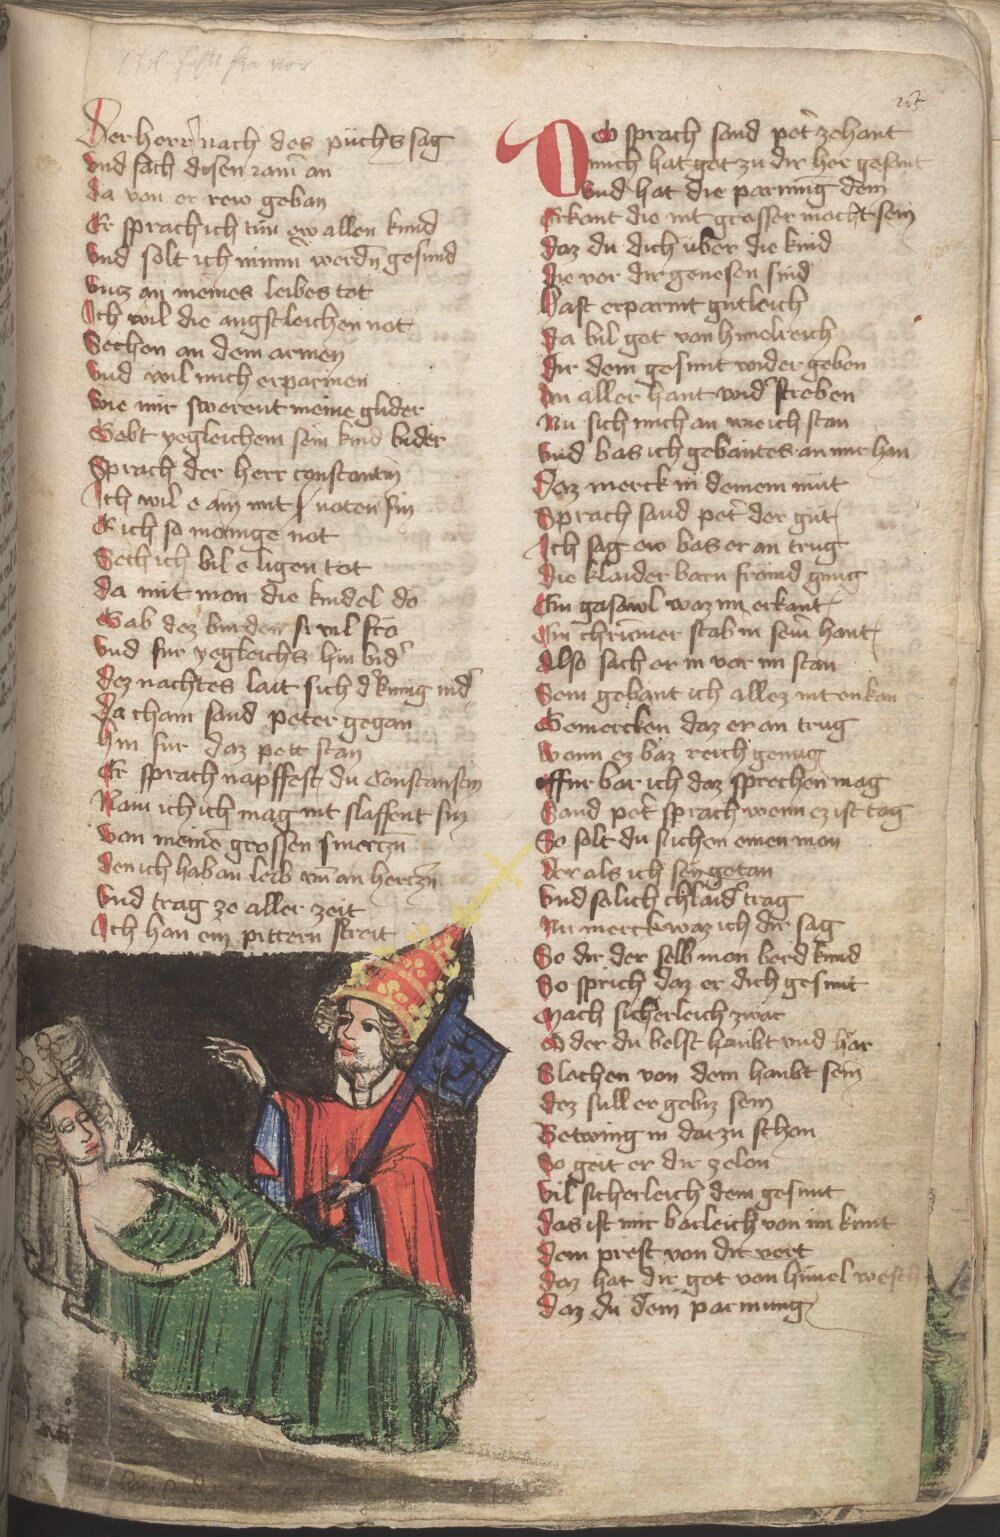 Der herr nach des püchs sag
Vnd sach disen ram an
Da von er rew geban
Er sprach ich tun ew allen kund
Vnd solt ich nimm werdn gesund
Vntz an meines leibes tot
Ich wil die angstleichen not
Sechen an dem armen
Vnd wil mich erparmen
Wie mir swerent meine glider
Gebt yegleichem sein kind bider
Sprach der herr constantin
Ich wil e ain mit noten sin
E ich so manige not
Sech ich bil e ligen tot
Da mit mon die kindel do
Gab dez burden si vil fro
Vnd fur yegleichs hin bid
Dez nachtes lait sich d kunig nid
Da cham sand peter gegan
Hin fur daz pett stan
Er sprach napffest du Constantin
Nain ich ich mag nit slaffent sin
Von meine grossen smerczn
Den ich hab an leib vn an herczn
Vnd trag ze aller zeit
Ich han ein pittern streit
Do sprach sand pet zehant
mich hat got zu dir her gesant
Vnd hat die parmung dein
Erkant die nit grosser mocht sein
Daz du dich über die kind
Die vor dir genesen sind
Hast erparmt gutleich
Da bil got von himelreich
Dir dein gesunt wider geben
In aller hant wid streben
Nu sich mich an wie ich stan
Vnd bas ich gebantes an mir han
Daz merck in deinem mut
Sprach sand pet der gut
Ich sag ew bas er an trug
Die klaider barn fromd gnug
Ein gasawl waz im erkant
Ein chrumer stab in sein hant
Also sach er in vor im stan
Sein gebant ich allez nit enkan
Gemercken daz er an trug
Wann ez baz reich genug
Offnbar ich daz sprechen mag
Sand pet sprach wenn ez ist tag
So solt du suchen einen mon
Der als ich sey getan
Vnd solich chlaid trag
Nu merck waz ich dir sag
So dir der selb mon berd kund
So sprich daz er dich gesunt
Mach sicherleich zwar
Oder du belst haubt vnd har
Slachen von dem haubt sein
Dez sull er gebiz sein
Betwing in darzu schon
So geit er dir ze lon
Vil sicherleich dein gesunt
Das ist mir barleich von im kunt
Dem prest von dir vert
Daz hat dir got von himel
Daz du dein parmung